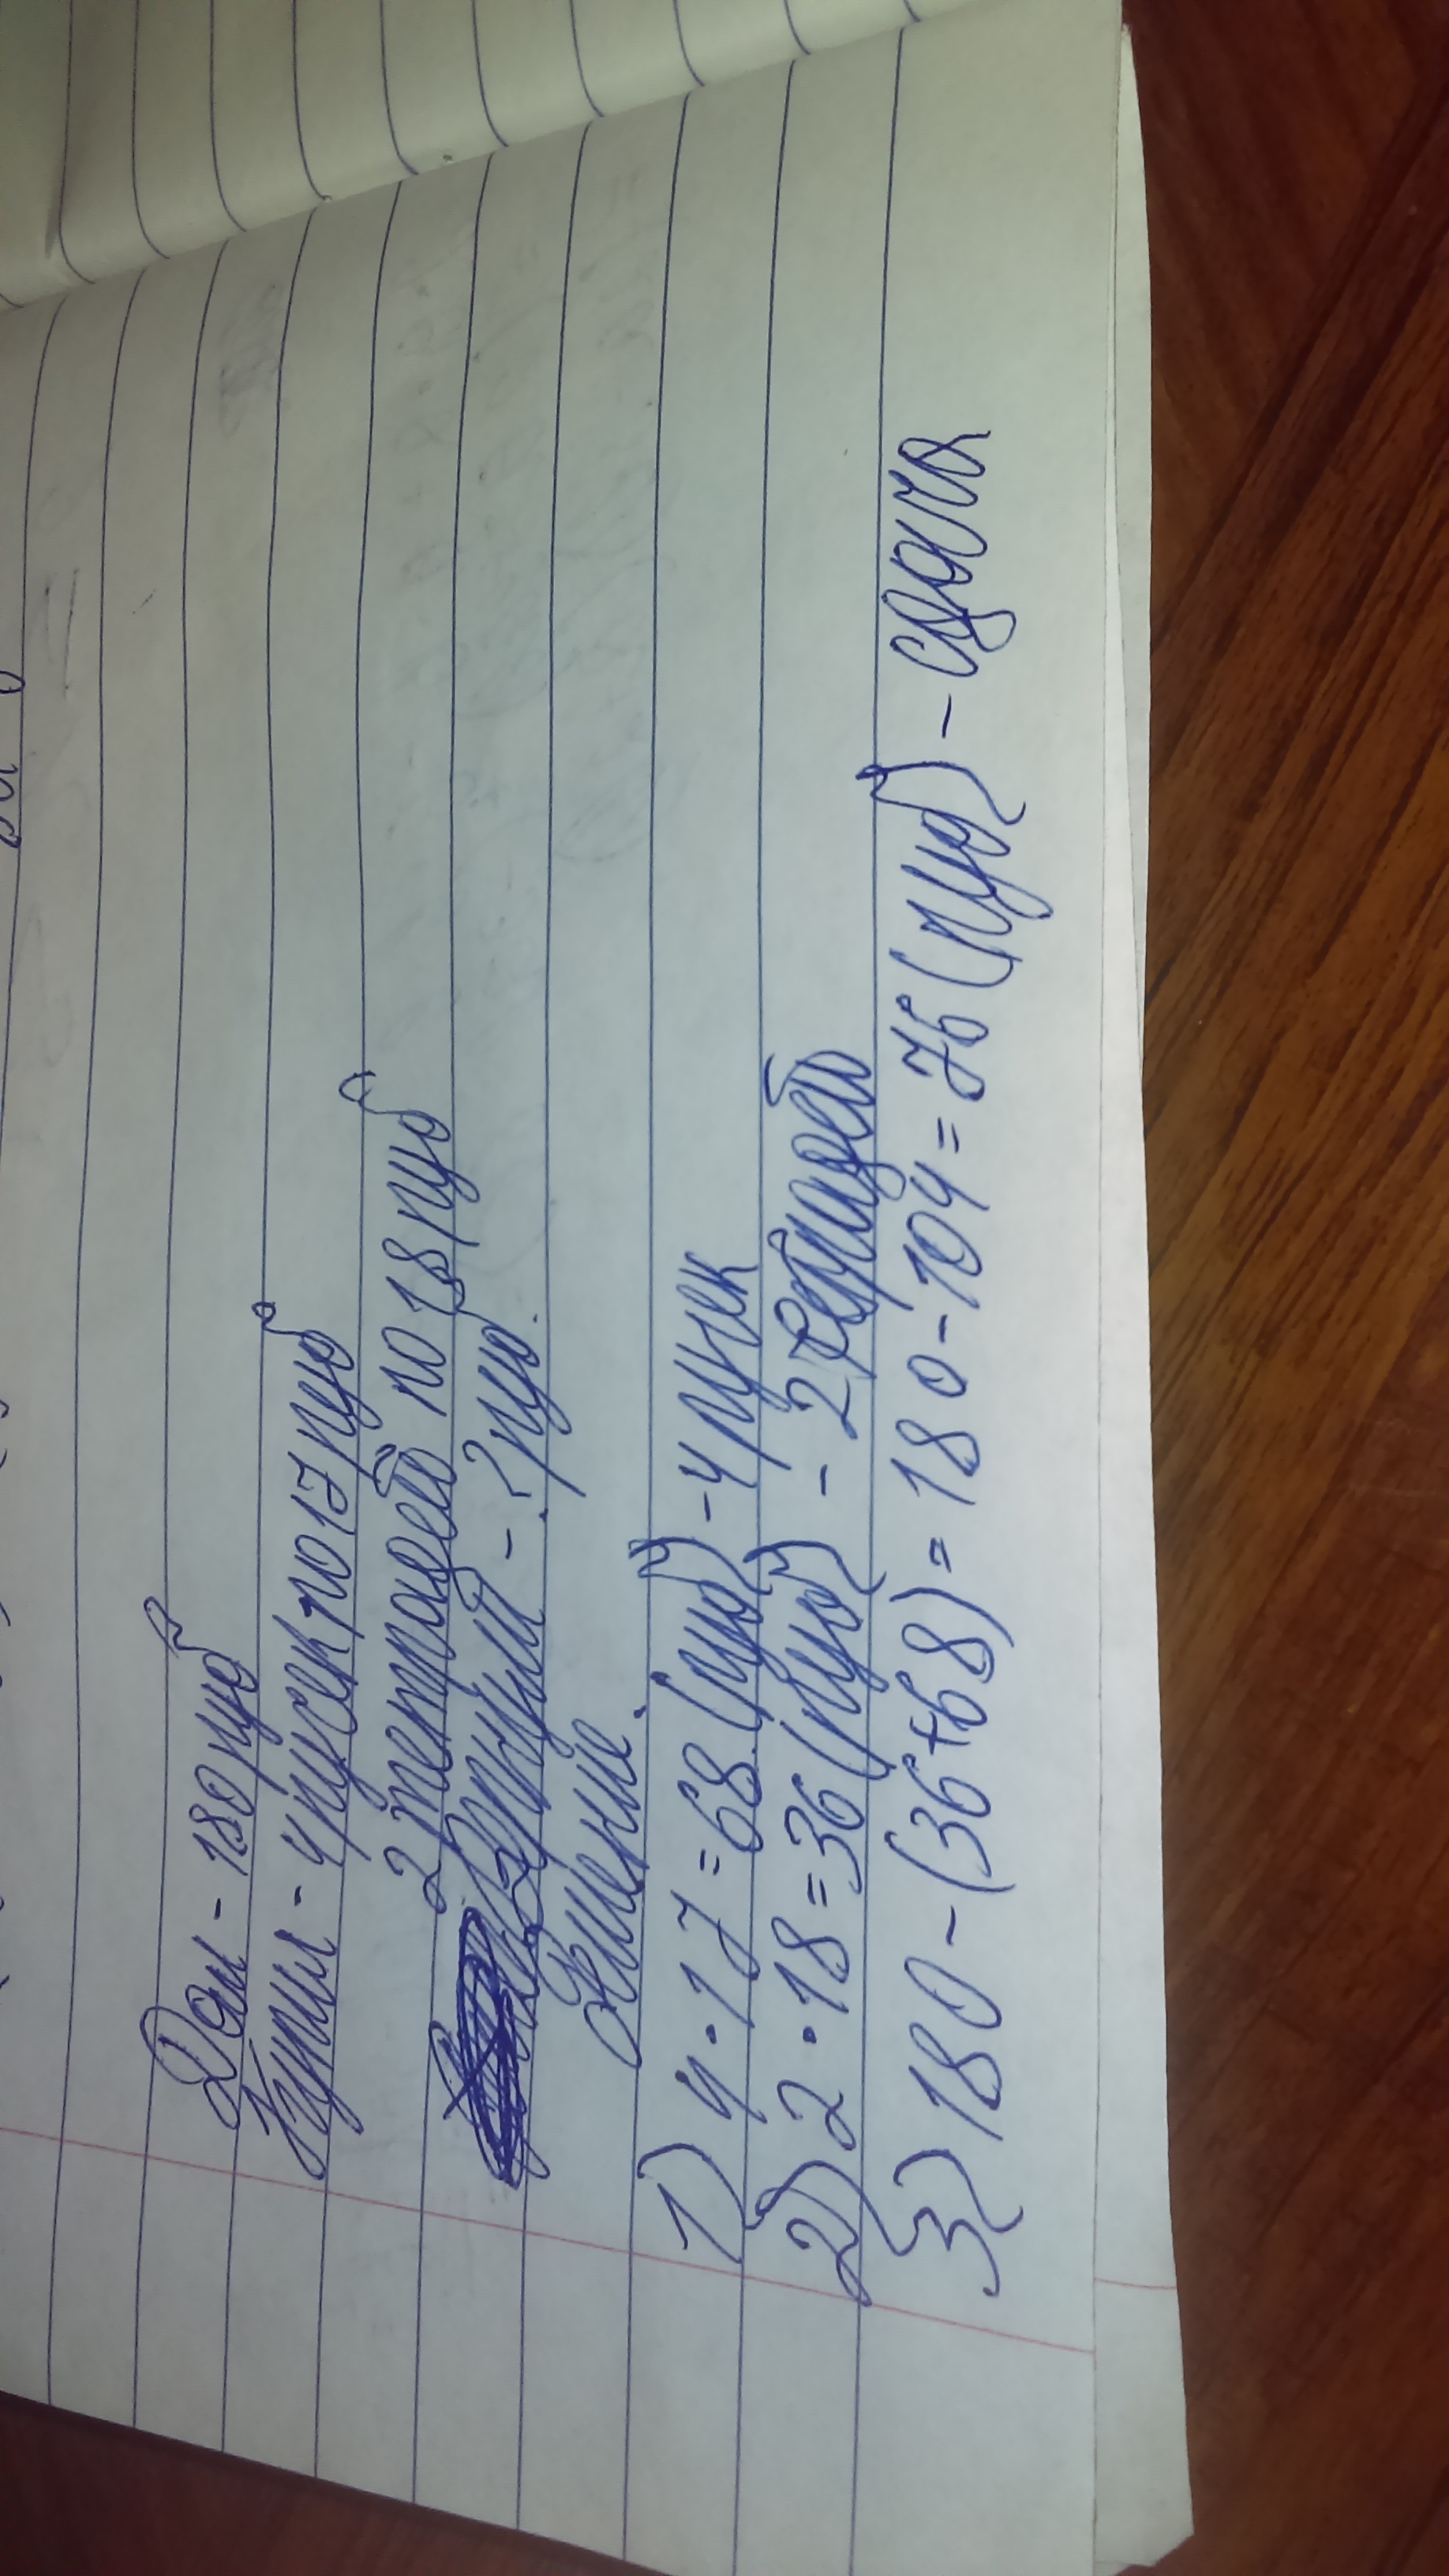 Дали - 180 руб
Купил - 4 ручек по 17 руб
2 тетрадей по 18 руб
Вернули - ? руб.
Решение.
1) 4 · 17 = 68 (руб) - 4 ручек
2) 2 · 18 = 36 (руб) - 2 тетрадей
3) 180 - (36+68) = 180-104 = 76 (руб) - сдача